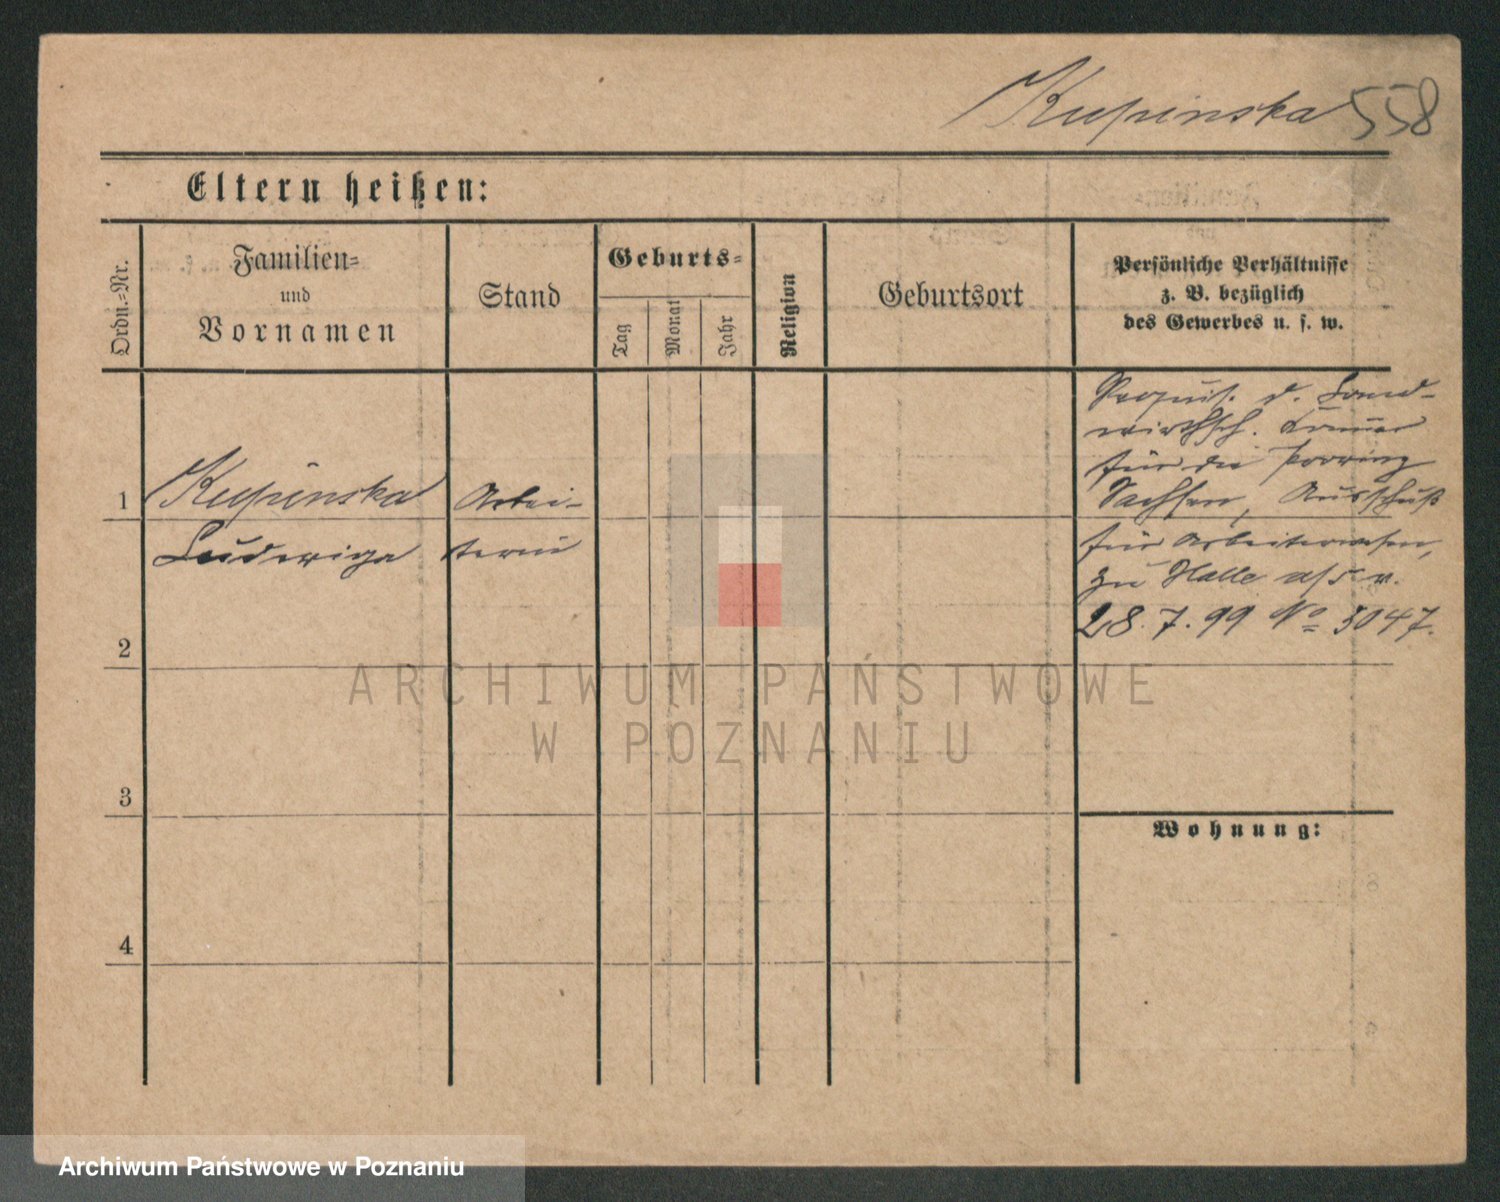 Kupinska 558
Eltern heißen:
Ordn.-Nr.
Familien-
und
Vornamen
Stand
Geburts-
Tag
Monat
Jahr
Religion
Geburtsort
Persönliche Verhältnisse
z. B. bezüglich
des Gewerbes u. s. w.
1
Kupinska
Ludwiga
Arbei-
terin
Requis. d. Land-
wirthsch. Kammer
für die Provinz
Sachsen, Ausschuß
für Arbeiterwesen,
zu Halle a/S v.
28.7.99 No 3047.
2
3
4
Wohnung:
ARCHIWUM PAŃSTWOWE
W POZNANIU
Archiwum Państwowe w Poznaniu